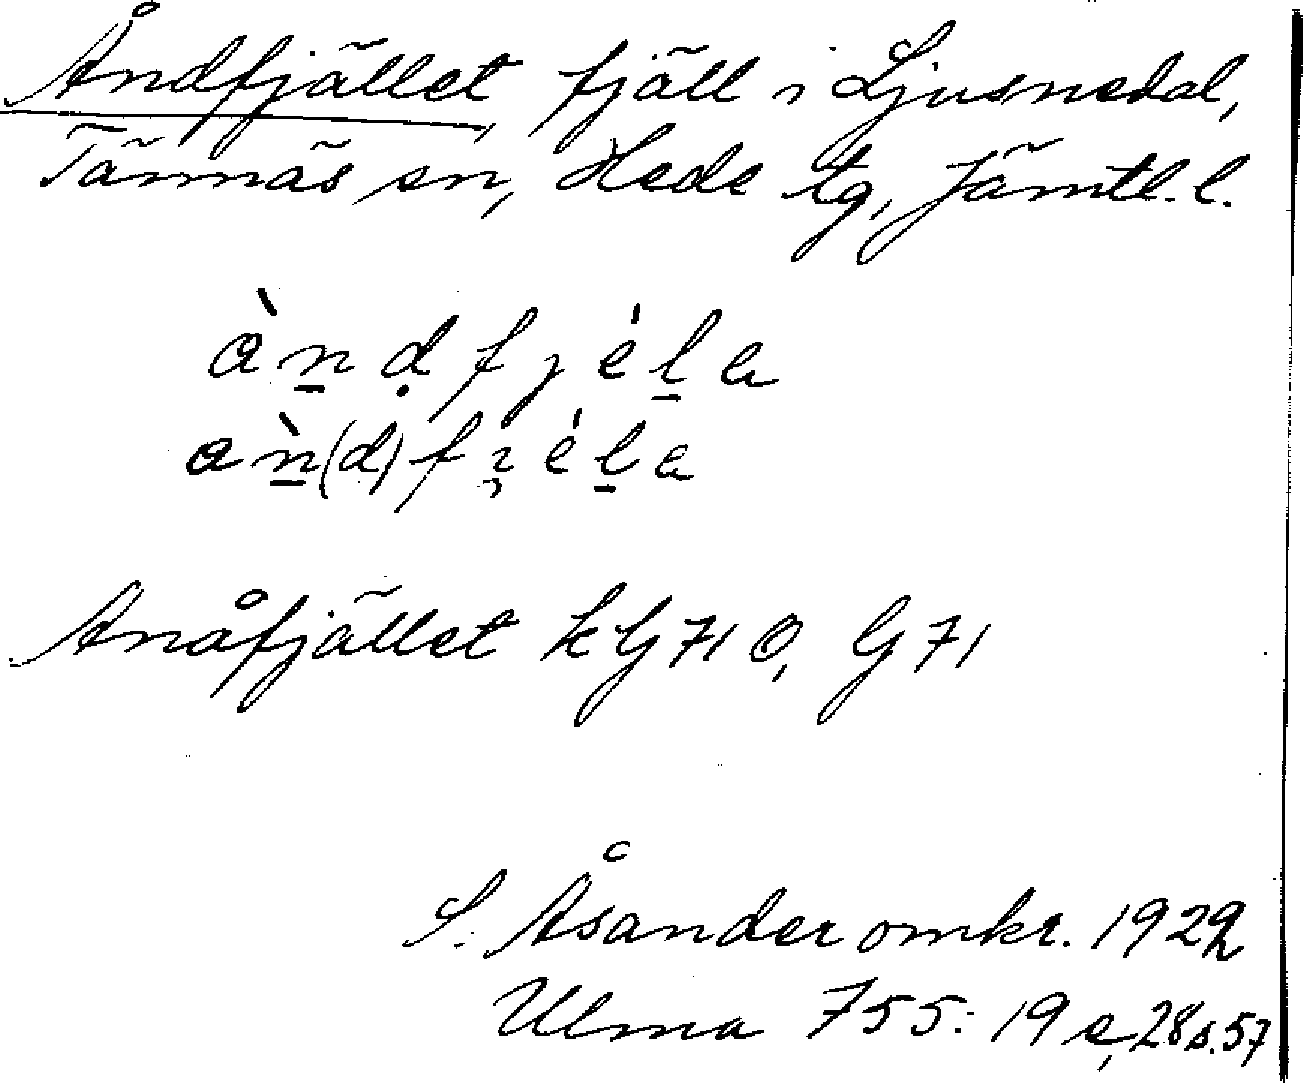 Åndfjället, fjäll i Ljusnedal,
Tännäs sn, Hede tg, Jämtl. l.
àn̲ḍfjèl̲a
aǹ̲(d)fjèl̲a
Anåfjället kG71 Ö, G71
S. Åsander omkr. 1922
Ulma 755: 19 a, 28 s. 57